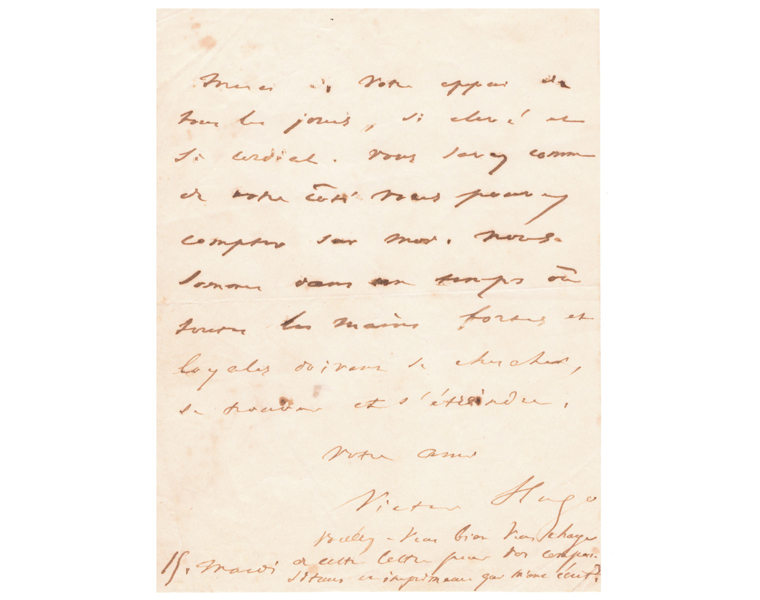 Merci de votre appui de
tous les jours, si élevé et
si cordial. Vous savez comme
de votre côté vous pouvez
compter sur moi. Nous
sommes dans un temps où
toutes les mains fortes et
loyales doivent se chercher,
se trouver et s'étreindre.
Votre ami
Victor Hugo
voulez-vous bien vous charger
15. Mardi de cette lettre pour vos compos-
siteurs imprimeurs qui m'ont écrit?